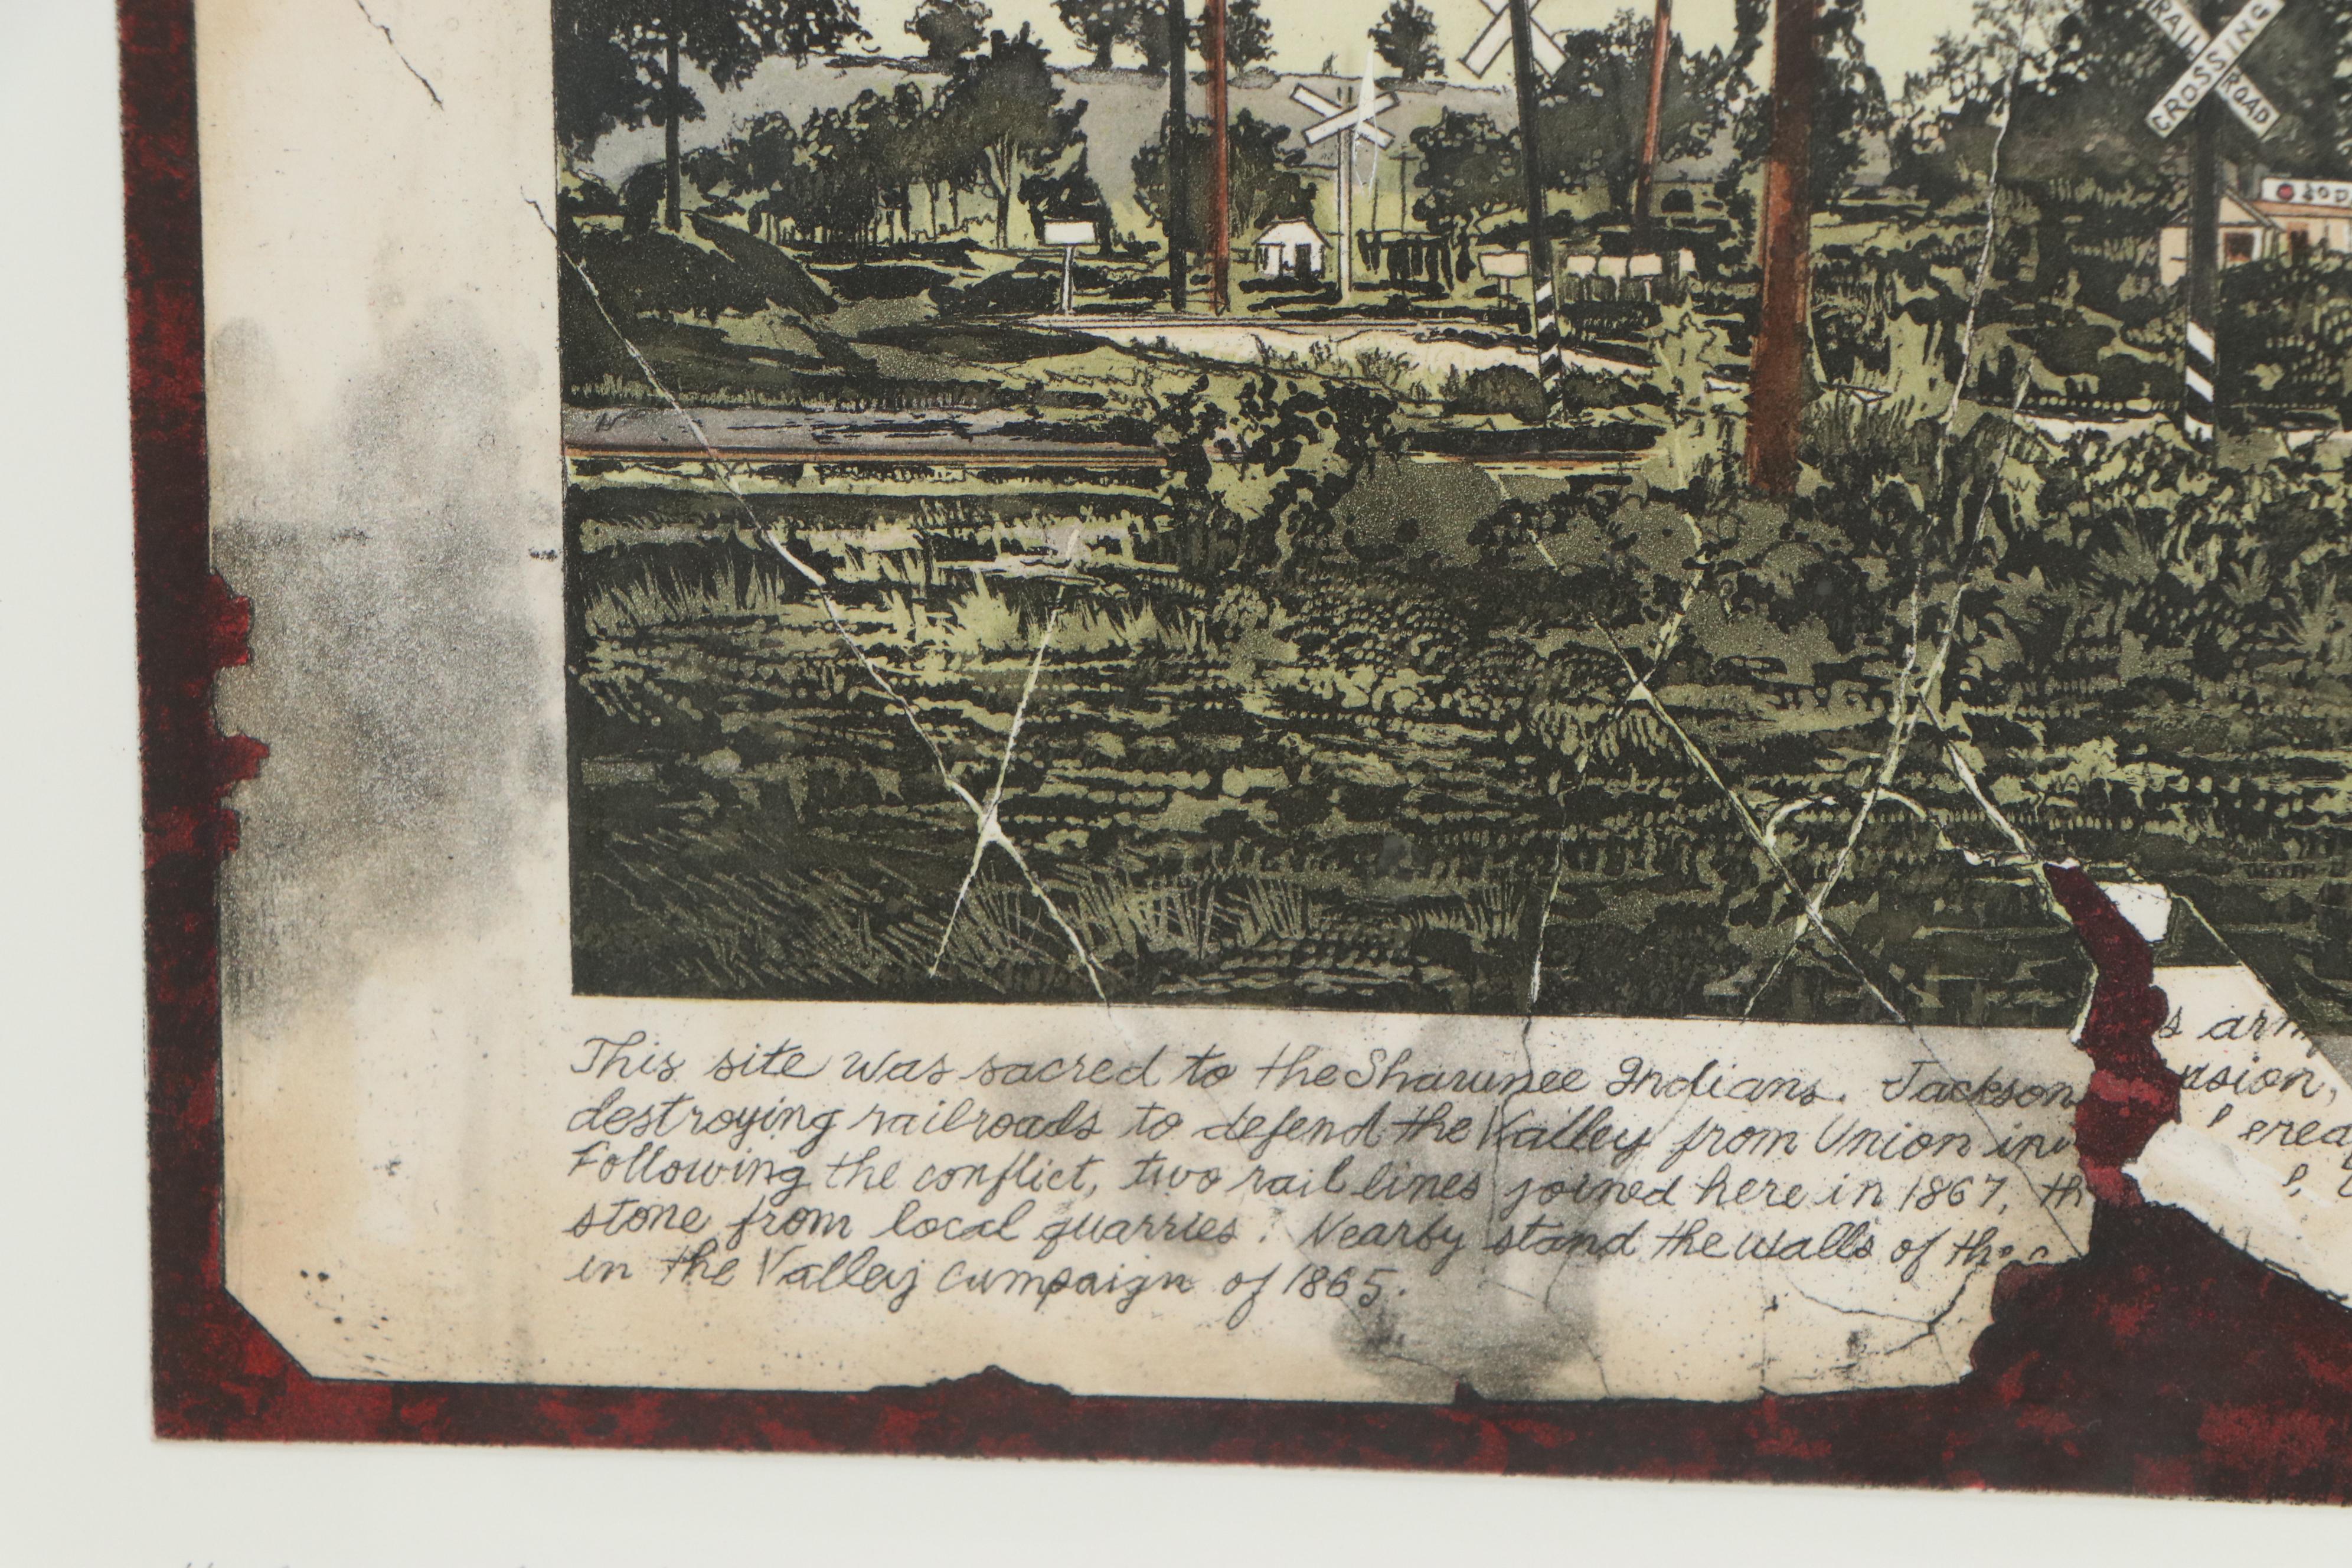 RAIL ROAD
CROSSING
This site was sacred to the Shawnee Indians. Jackson s arm
destroying railroads to defend the Valley from Union inv asion,
Following the conflict, two rail lines joined here in 1867, th ered
stone from local quarries. Nearby stand the walls of the
in the Valley Campaign of 1865.